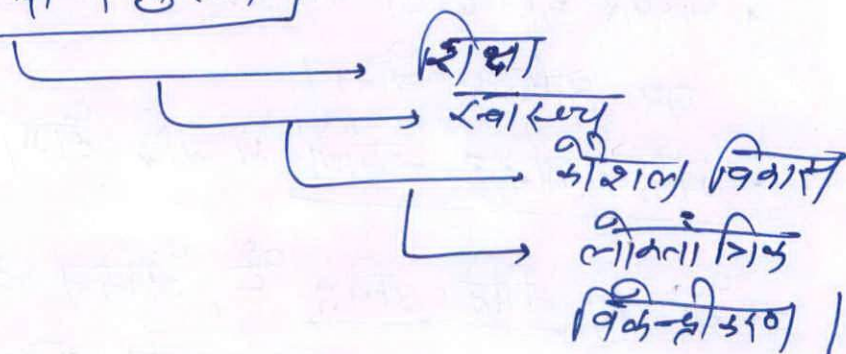 शिक्षा
स्वास्थ्य
कौशल विकास
लोकतांत्रिक
विकेन्द्रीकरण।